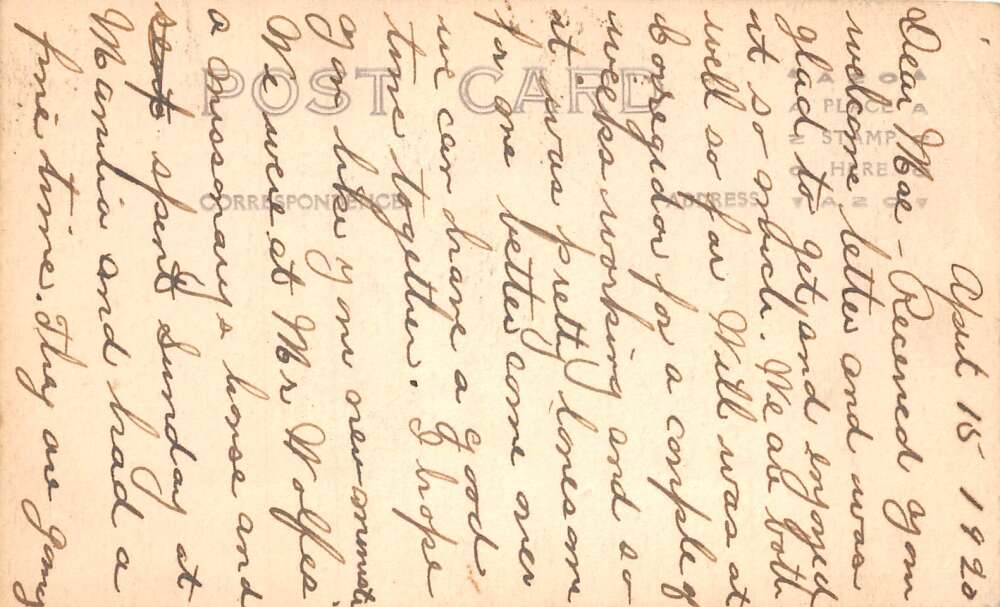 April 15 1920
Dear Mae - Received your
welcome letter and was
glad to get and enjoyed
it so much. We are both
well so far Will was at
Coregidor for a couple of
weeks working and so
it was pretty lonesome
for me better come over
we can have a good
time together. I hope
you like your new
We were at Mr Wolfes
a missonarys house and
spent Sunday at
Manilia and had a
fine time. They are going
POST CARD
CORRESPONDENCE
ADDRESS
AZO
PLACE
STAMP
HERE
AZO